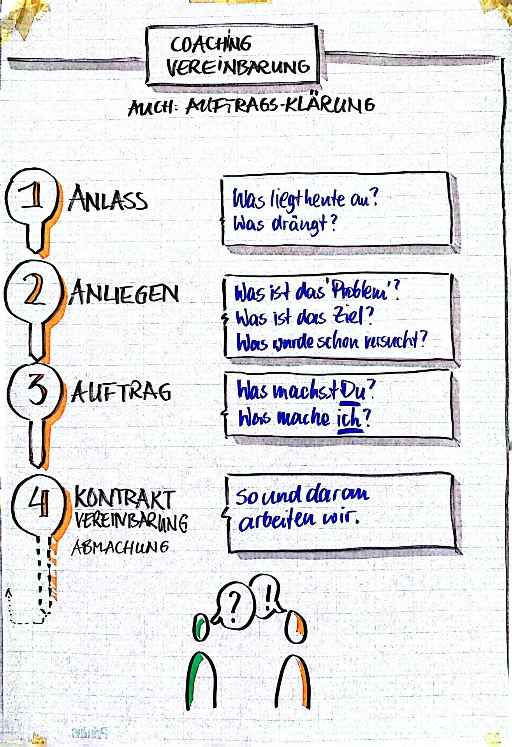 COACHING
VEREINBARUNG
AUCH: AUFTRAGS-KLÄRUNG
1 ANLASS
Was liegt heute an?
Was drängt?
2 ANLIEGEN
Was ist das 'Problem'?
Was ist das Ziel?
Was wurde schon versucht?
3 AUFTRAG
Was machst Du?
Was mache ich?
4 KONTRAKT
VEREINBARUNG
ABMACHUNG
so und daran
arbeiten wir.
? !